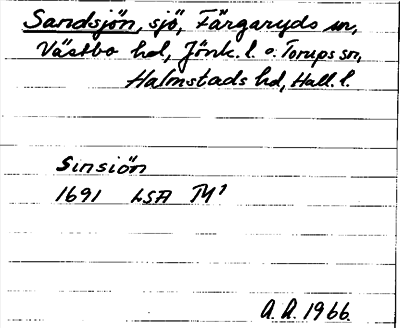 Sandsjön, sjö, Färgaryds sn,
Västbo hd, Jönk. l. o. Torups sn,
Halmstads hd, Hall. l.
Sinsiön
1691 LSA M¹
A.A. 1966.